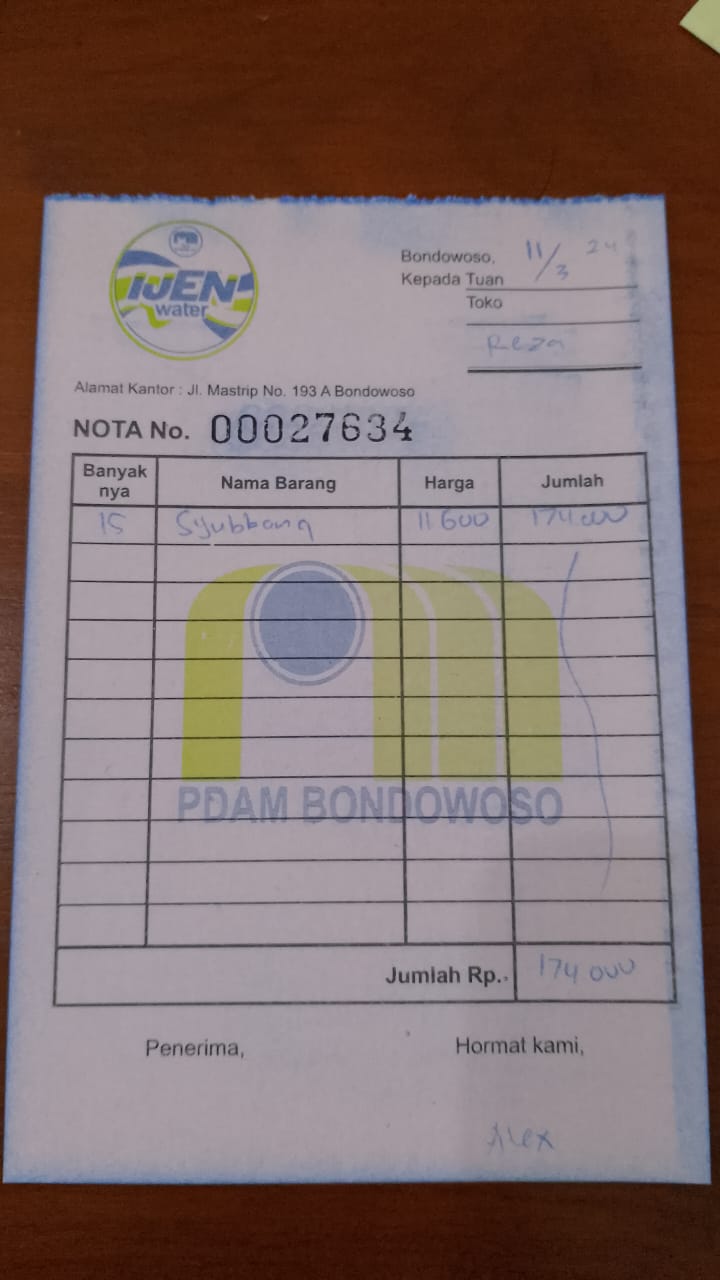 IJEN
water
Bondowoso, 11/3 24
Kepada Tuan
Toko
Reza
Alamat Kantor : Jl. Mastrip No. 193 A Bondowoso
NOTA No. 00027634
Banyak nya Nama Barang Harga Jumlah
15 11 600 174.000
PDAM BONDOWOSO
Jumlah Rp. 174 000
Penerima, Hormat kami,
Alex